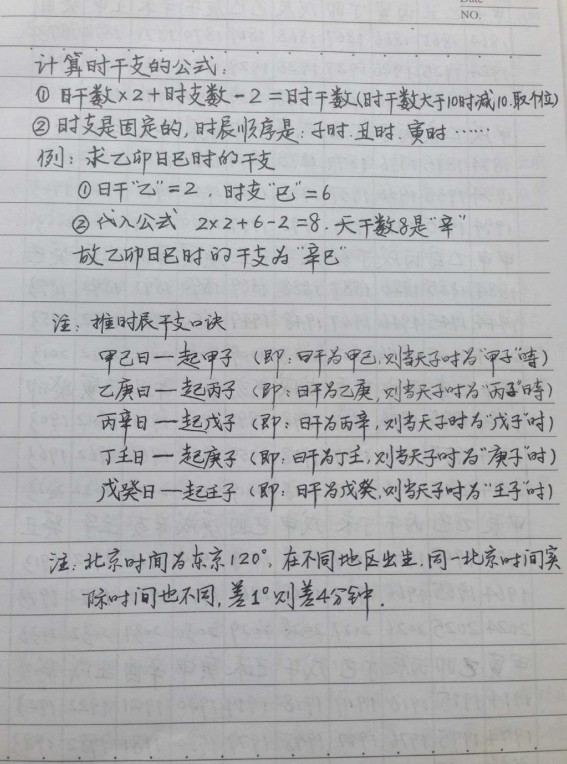 Date
NO.
计算时干支的公式:
① 日干数×2+时支数-2=时干数(时干数大于10时减10.取个位)
② 时支是固定的,时辰顺序是:子时.丑时.寅时……
例:求乙卯日巳时的干支
①日干"乙"=2.时支"巳"=6
②代入公式 2×2+6-2=8.天干数8是"辛"
故乙卯日巳时的干支为"辛巳"
注:推时辰干支口诀
甲己日一起甲子(即:日干为甲己,则当天子时为"甲子"時)
乙庚日一起丙子(即:日干为乙庚,则当天子时为"丙子"時)
丙辛日一起戊子(即:日干为丙辛,则当天子时为"戊子"时)
丁壬日一起庚子(即:日干为丁壬,则当天子时为"庚子"时)
戊癸日一起壬子(即:日干为戊癸,则当天子时为"壬子"时)
注:北京时间为东京120°,在不同地区出生.同一北京时间实
际时间也不同,差1°则差4分钟.